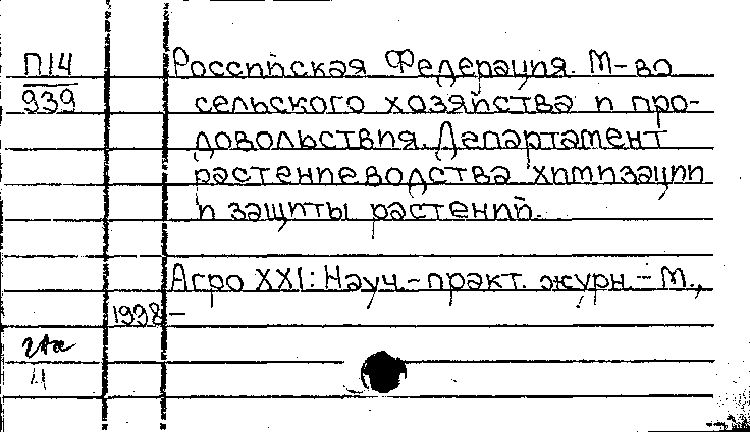 П14
939
Российская Федерация. М-во
сельского хозяйства и про-
довольствия. Департамент
растениеводства химизации
и защиты растений.
Агро XXI: Науч.-практ. журн. - М.,
1998 -